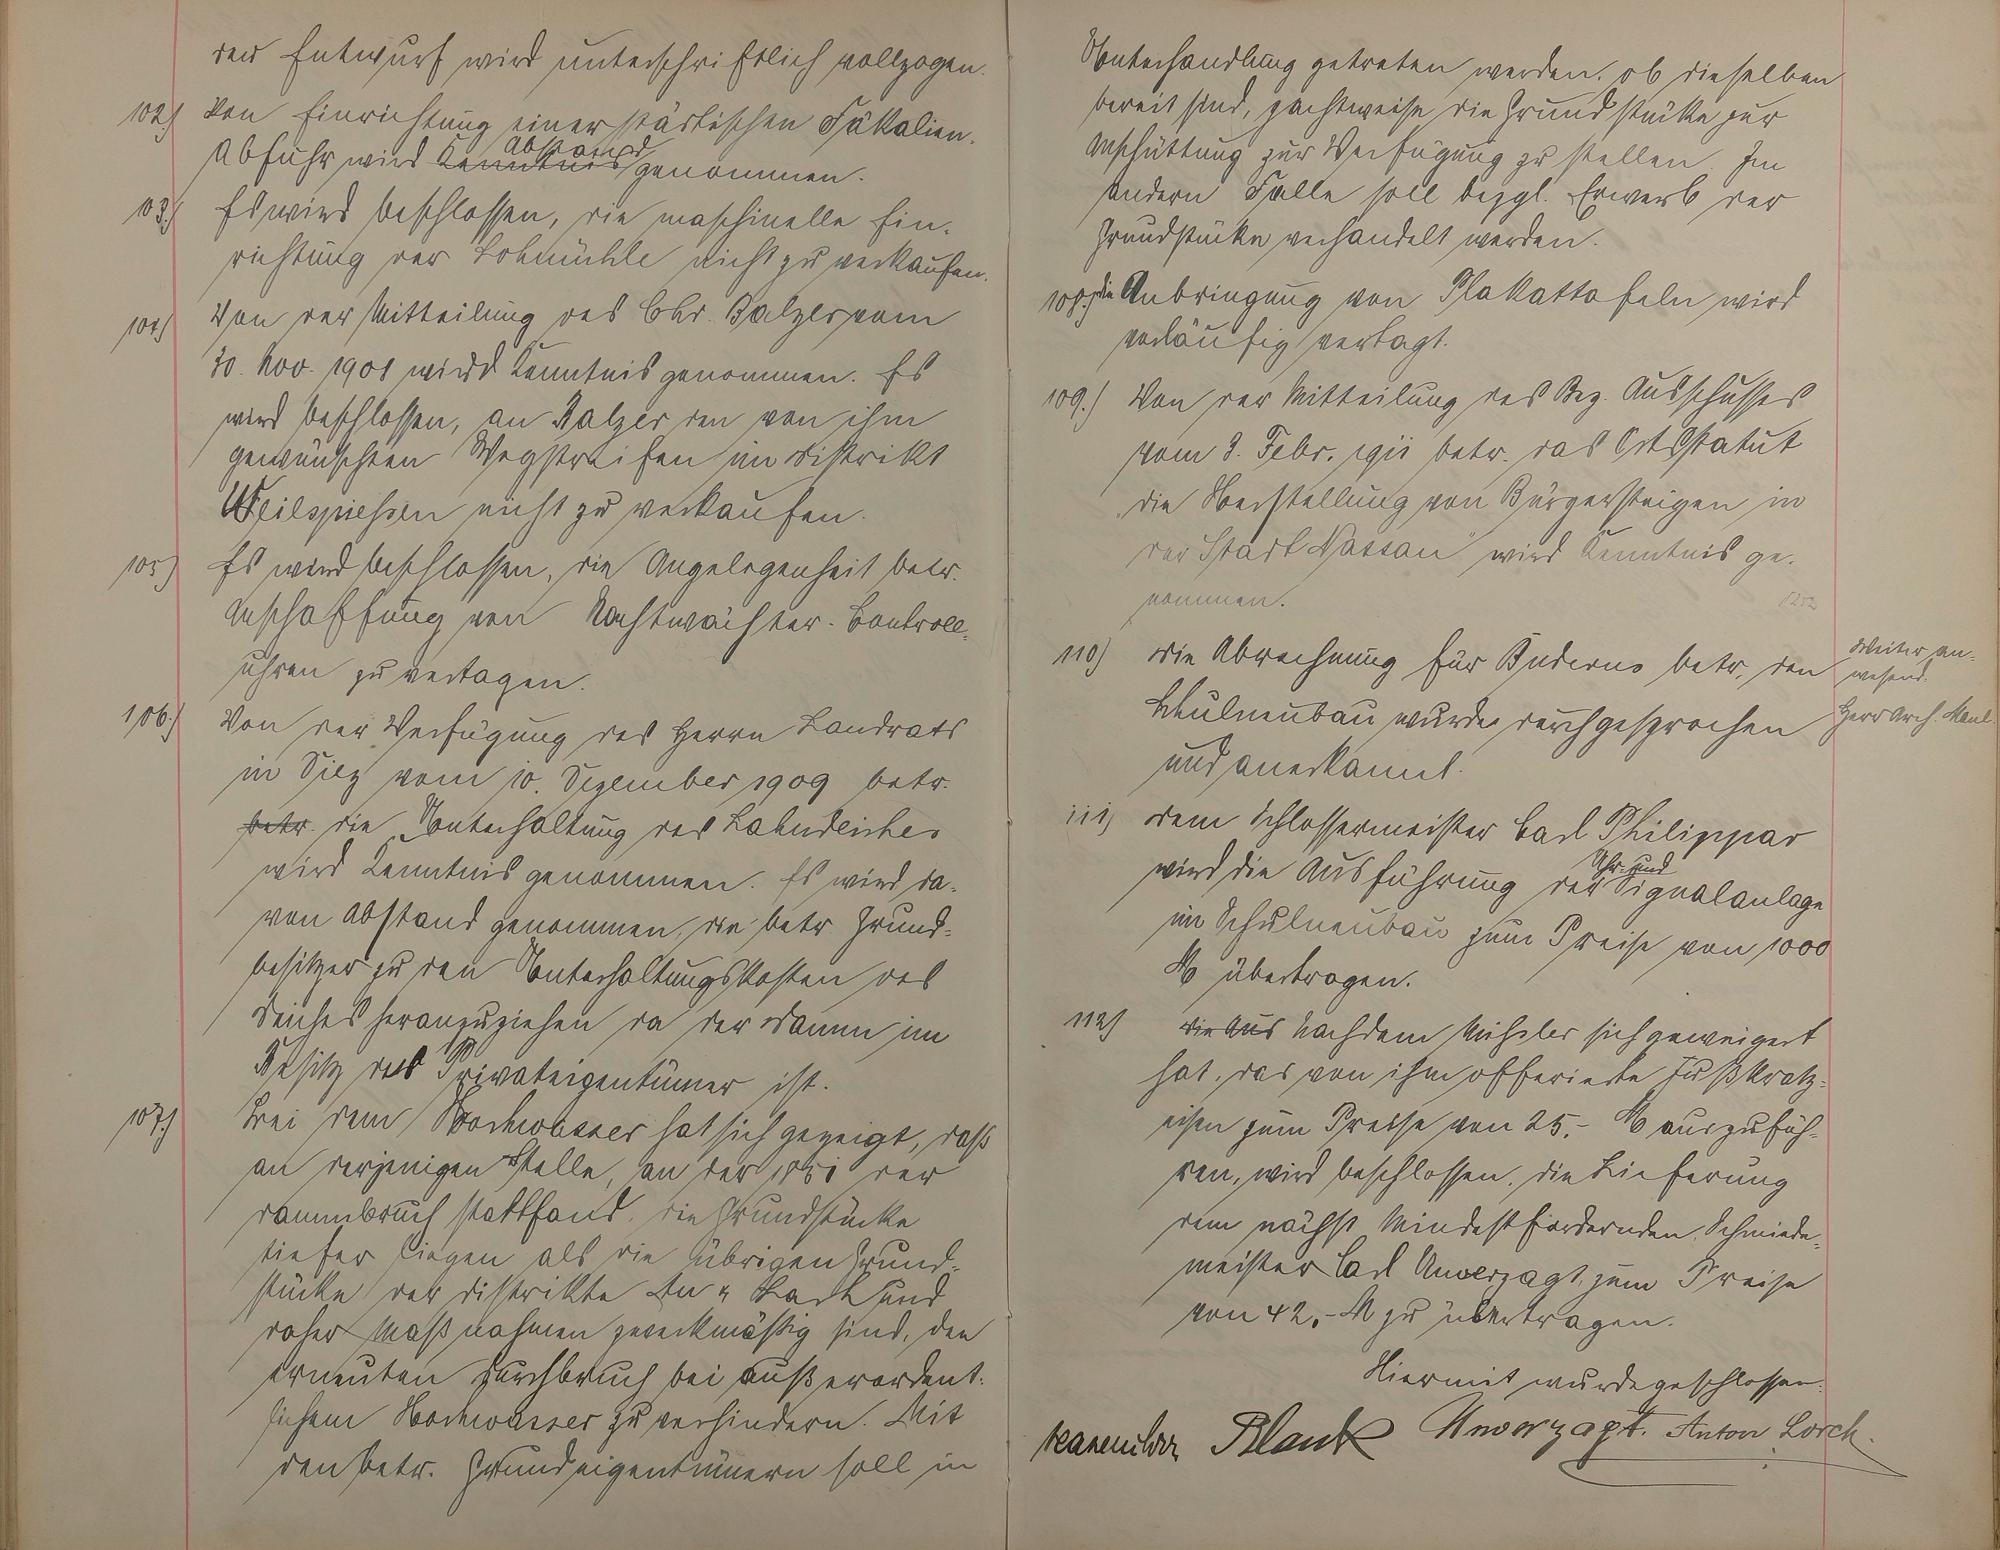 der Entwurf wird unterschriftlich vollzogen.
102.) Von Einrichtung einer städtischen Fäkalien-
Abfuhr wird Kenntnis Abstand genommen.
103.) Es wird beschlossen, die maschinelle Ein-
richtung der Lohmühle nicht zu verkaufen.
104) Von der Mitteilung des Chr. Balzer vom
30. Nov. 1908 wird Kenntnis genommen. Es
wird beschlossen, an Balzer den von ihm
gewünschten Wegstreifen im Distrikt
nicht zu verkaufen.
105) Es wird beschlossen, die Angelegenheit betr.
Anschaffung von Nachtwächter-Controll-
uhren zu vertagen.
106.) Von der Verfügung des Herrn Landrats
in Diez vom 10. Dezember 1909 betr.
betr. die Unterhaltung des Lahndeiches
wird Kenntnis genommen. Es wird da-
von Abstand genommen, die betr. Grund-
besitzer zu den Unterhaltungskosten des
Deiches heranzuziehen da der Damm im
Besitz der Privateigentümer ist.
107.) Bei dem Hochwasser hat sich gezeigt, daß
an derjenigen Stelle, an der der
Dammbruch stattfand, die Grundstücke
tiefer liegen als die übrigen Grund-
stücke der Distrikte und
daher Maßnahmen zweckmäßig sind, den
erneuten Durchbruch bei außerordent-
lichem Hochwasser zu verhindern. Mit
den betr. Grundeigentümern soll in
Unterhandlung getreten werden, ob dieselben
bereit sind, pachtweise die Grundstücke zur
Anschüttung zur Verfügung zu stellen. Im
andern Falle soll bezgl. Erwerb der
Grundstücke verhandelt werden.
108.) Die Anbringung von Plakattafeln wird
vorläufig vertagt.
109.) Von der Mitteilung des Bez. Ausschusses
vom 3. Febr. 1911 betr. das Ortsstatut
„die Herstellung von Bürgersteigen in
der Stadt Nassau" wird Kenntnis ge-
nommen.
110) Die Abrechnung für Buderus betr. den
Schulneubau wurde durchgesprochen
und anerkannt.
Weiter an-
wesend:
Herr Arch.
111) Dem Schlossermeister Carl Philippar
wird die Ausführung der Uhr- und Signalanlage
im Schulneubau zum Preise von 1000
M übertragen.
112) Die Aus Nachdem sich geweigert
hat, das von ihm offerierte Fußkratz-
eisen zum Preise von 25,- M auszufüh-
ren, wird beschlossen, die Lieferung
dem nächst Mindestfordernden, Schmiede-
meister Carl Unverzagt, zum Preise
von 42,- M zu übertragen.
Hiermit wurde geschlossen.
Blank Unverzagt. Anton Lorch.